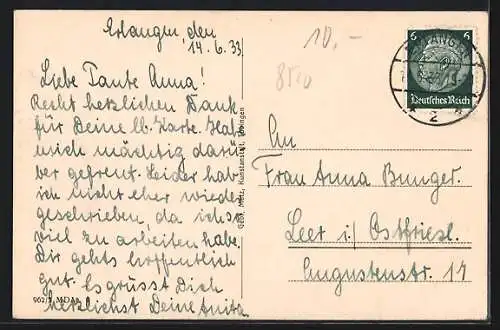 Erlangen, den
14.6.33
10,-
Liebe Tante Anna!
Recht herzlichen Dank
für Deine lb. Karte. Habe
mich mächtig darü-
ber gefreut. Leider hab
ich nicht eher wieder
geschrieben, da ich so
viel zu arbeiten habe.
Dir gehts hoffentlich
gut. Es grüsst Dich
herzlichst Deine Anita
An
Frau Anna Bunger.
Leer i/ Ostfriesl.
Augustenstr. 14
6 6
Deutsches Reich
2
Geb. Metz, Kunstanstalt, Tübingen